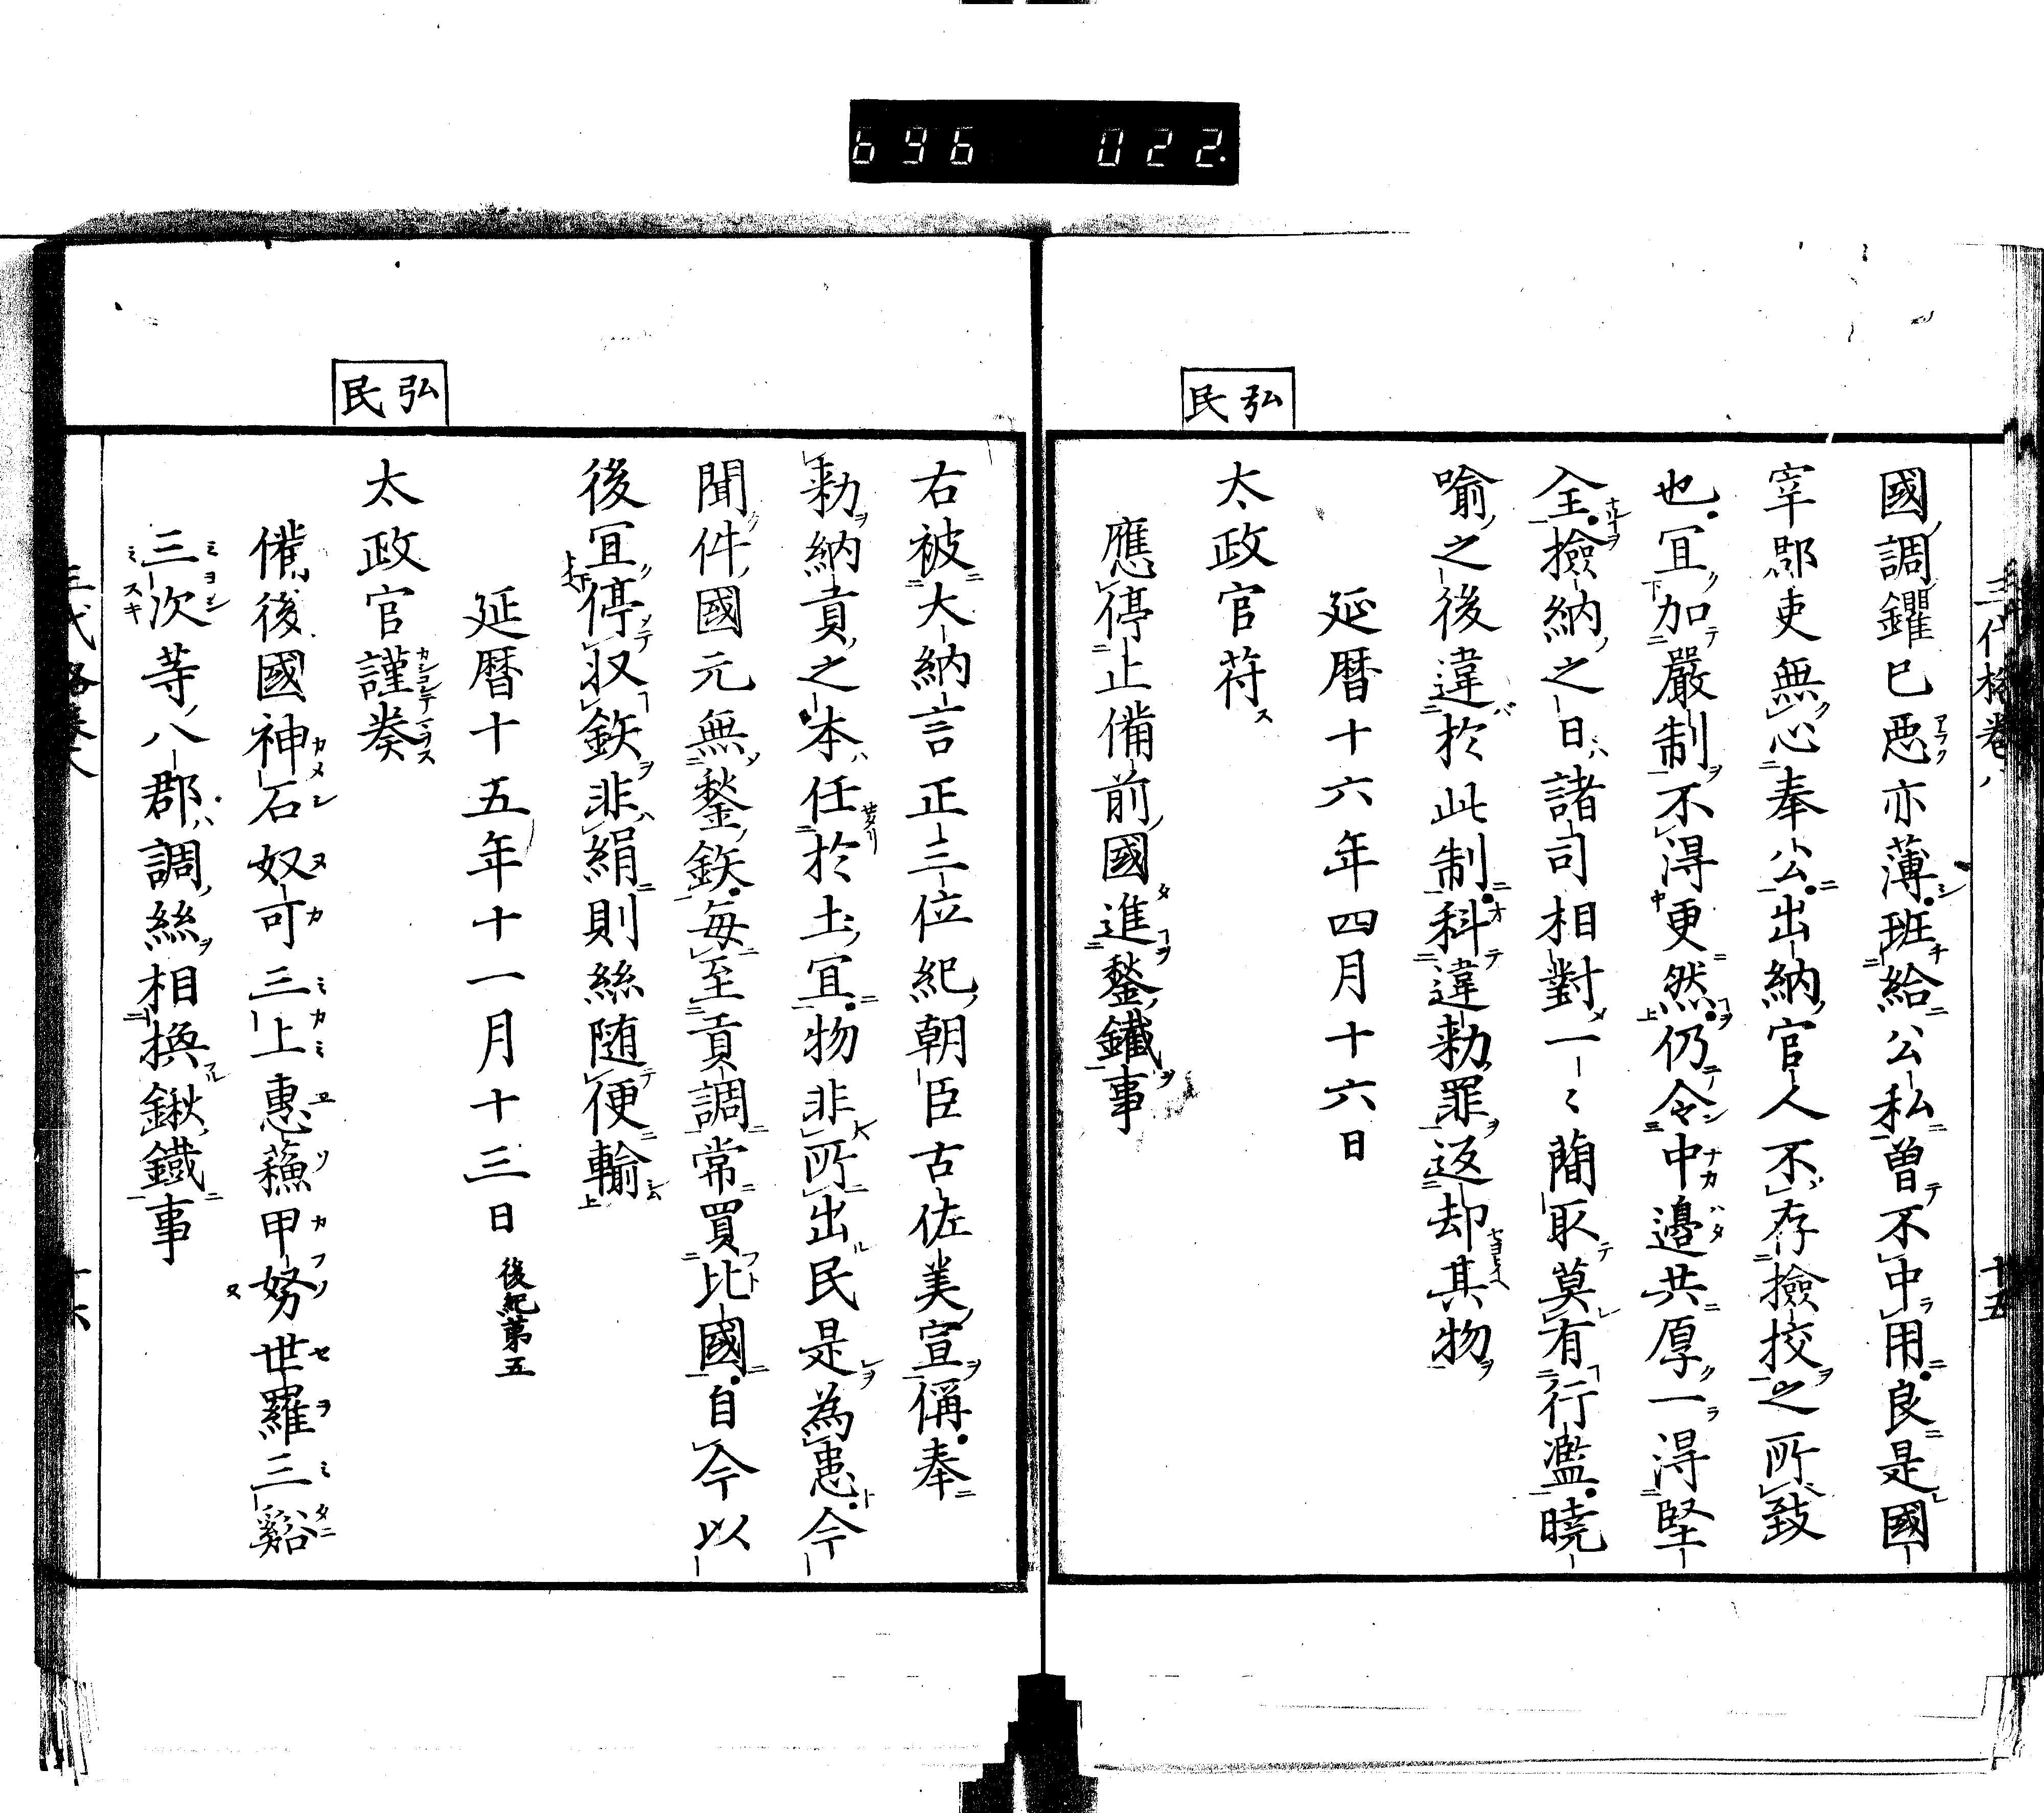 696 022.
三代格卷八 十五
國調钁已惡亦薄班給公私曽不中用良是國
宰郡吏無心奉公出納官人不存撿挍之所致
也冝加嚴制不得更然仍令中邊共厚一得堅
全撿納之日諸司相對一〻蕑取莫有行濫曉
喻之後違於此制科違勅罪返却其物
延暦十六年四月十六日
弘民
太政官苻
應停止備前國進鍫鐵事
右被大納言正三位紀朝臣古佐美宣偁奉
勅納貢之本任於土冝物非所出民是為患今
聞件國元無鍫鉄毎至貢調常買比國自今以
後冝停収鉄非絹則絲随便輸
延暦十五年十一月十三日 後紀第五
弘民
太政官謹奏
備後國神石奴可三上惠蘓甲努世羅三谿
三次等八郡調絲相換鍬鐵事